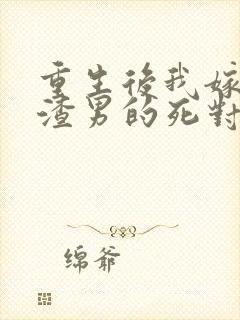 重生後我嫁
渣男的死對
绵爷